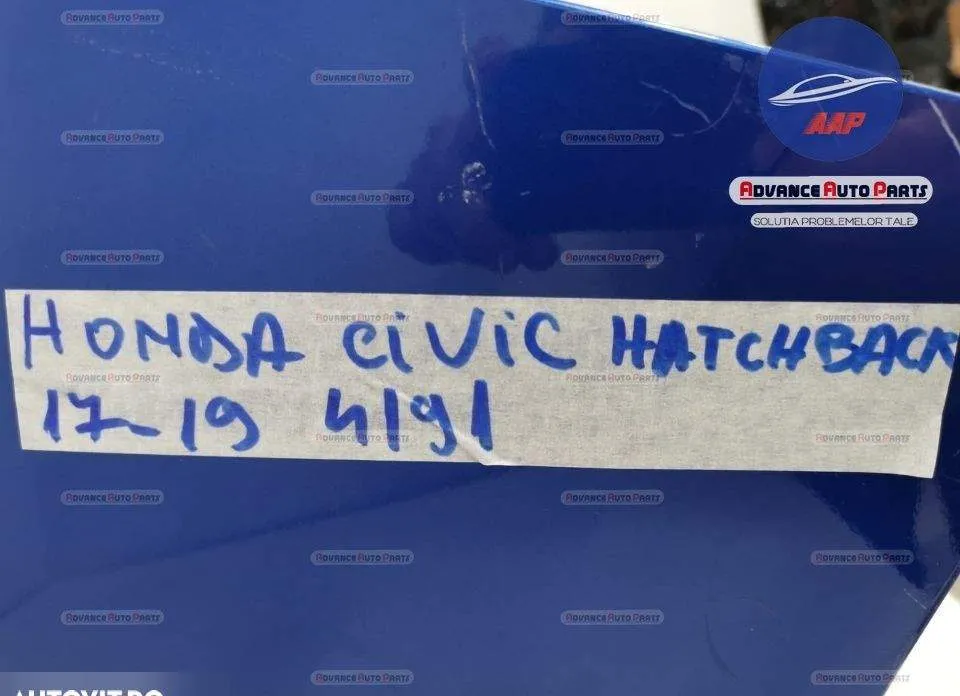 AAP
ADVANCE AUTO PARTS
SOLUTIA PROBLEMELOR TALE
HONDA CIVIC HATCHBACK
17-19 4191
ADVANCE AUTO PARTS
AUTOVIT.RO